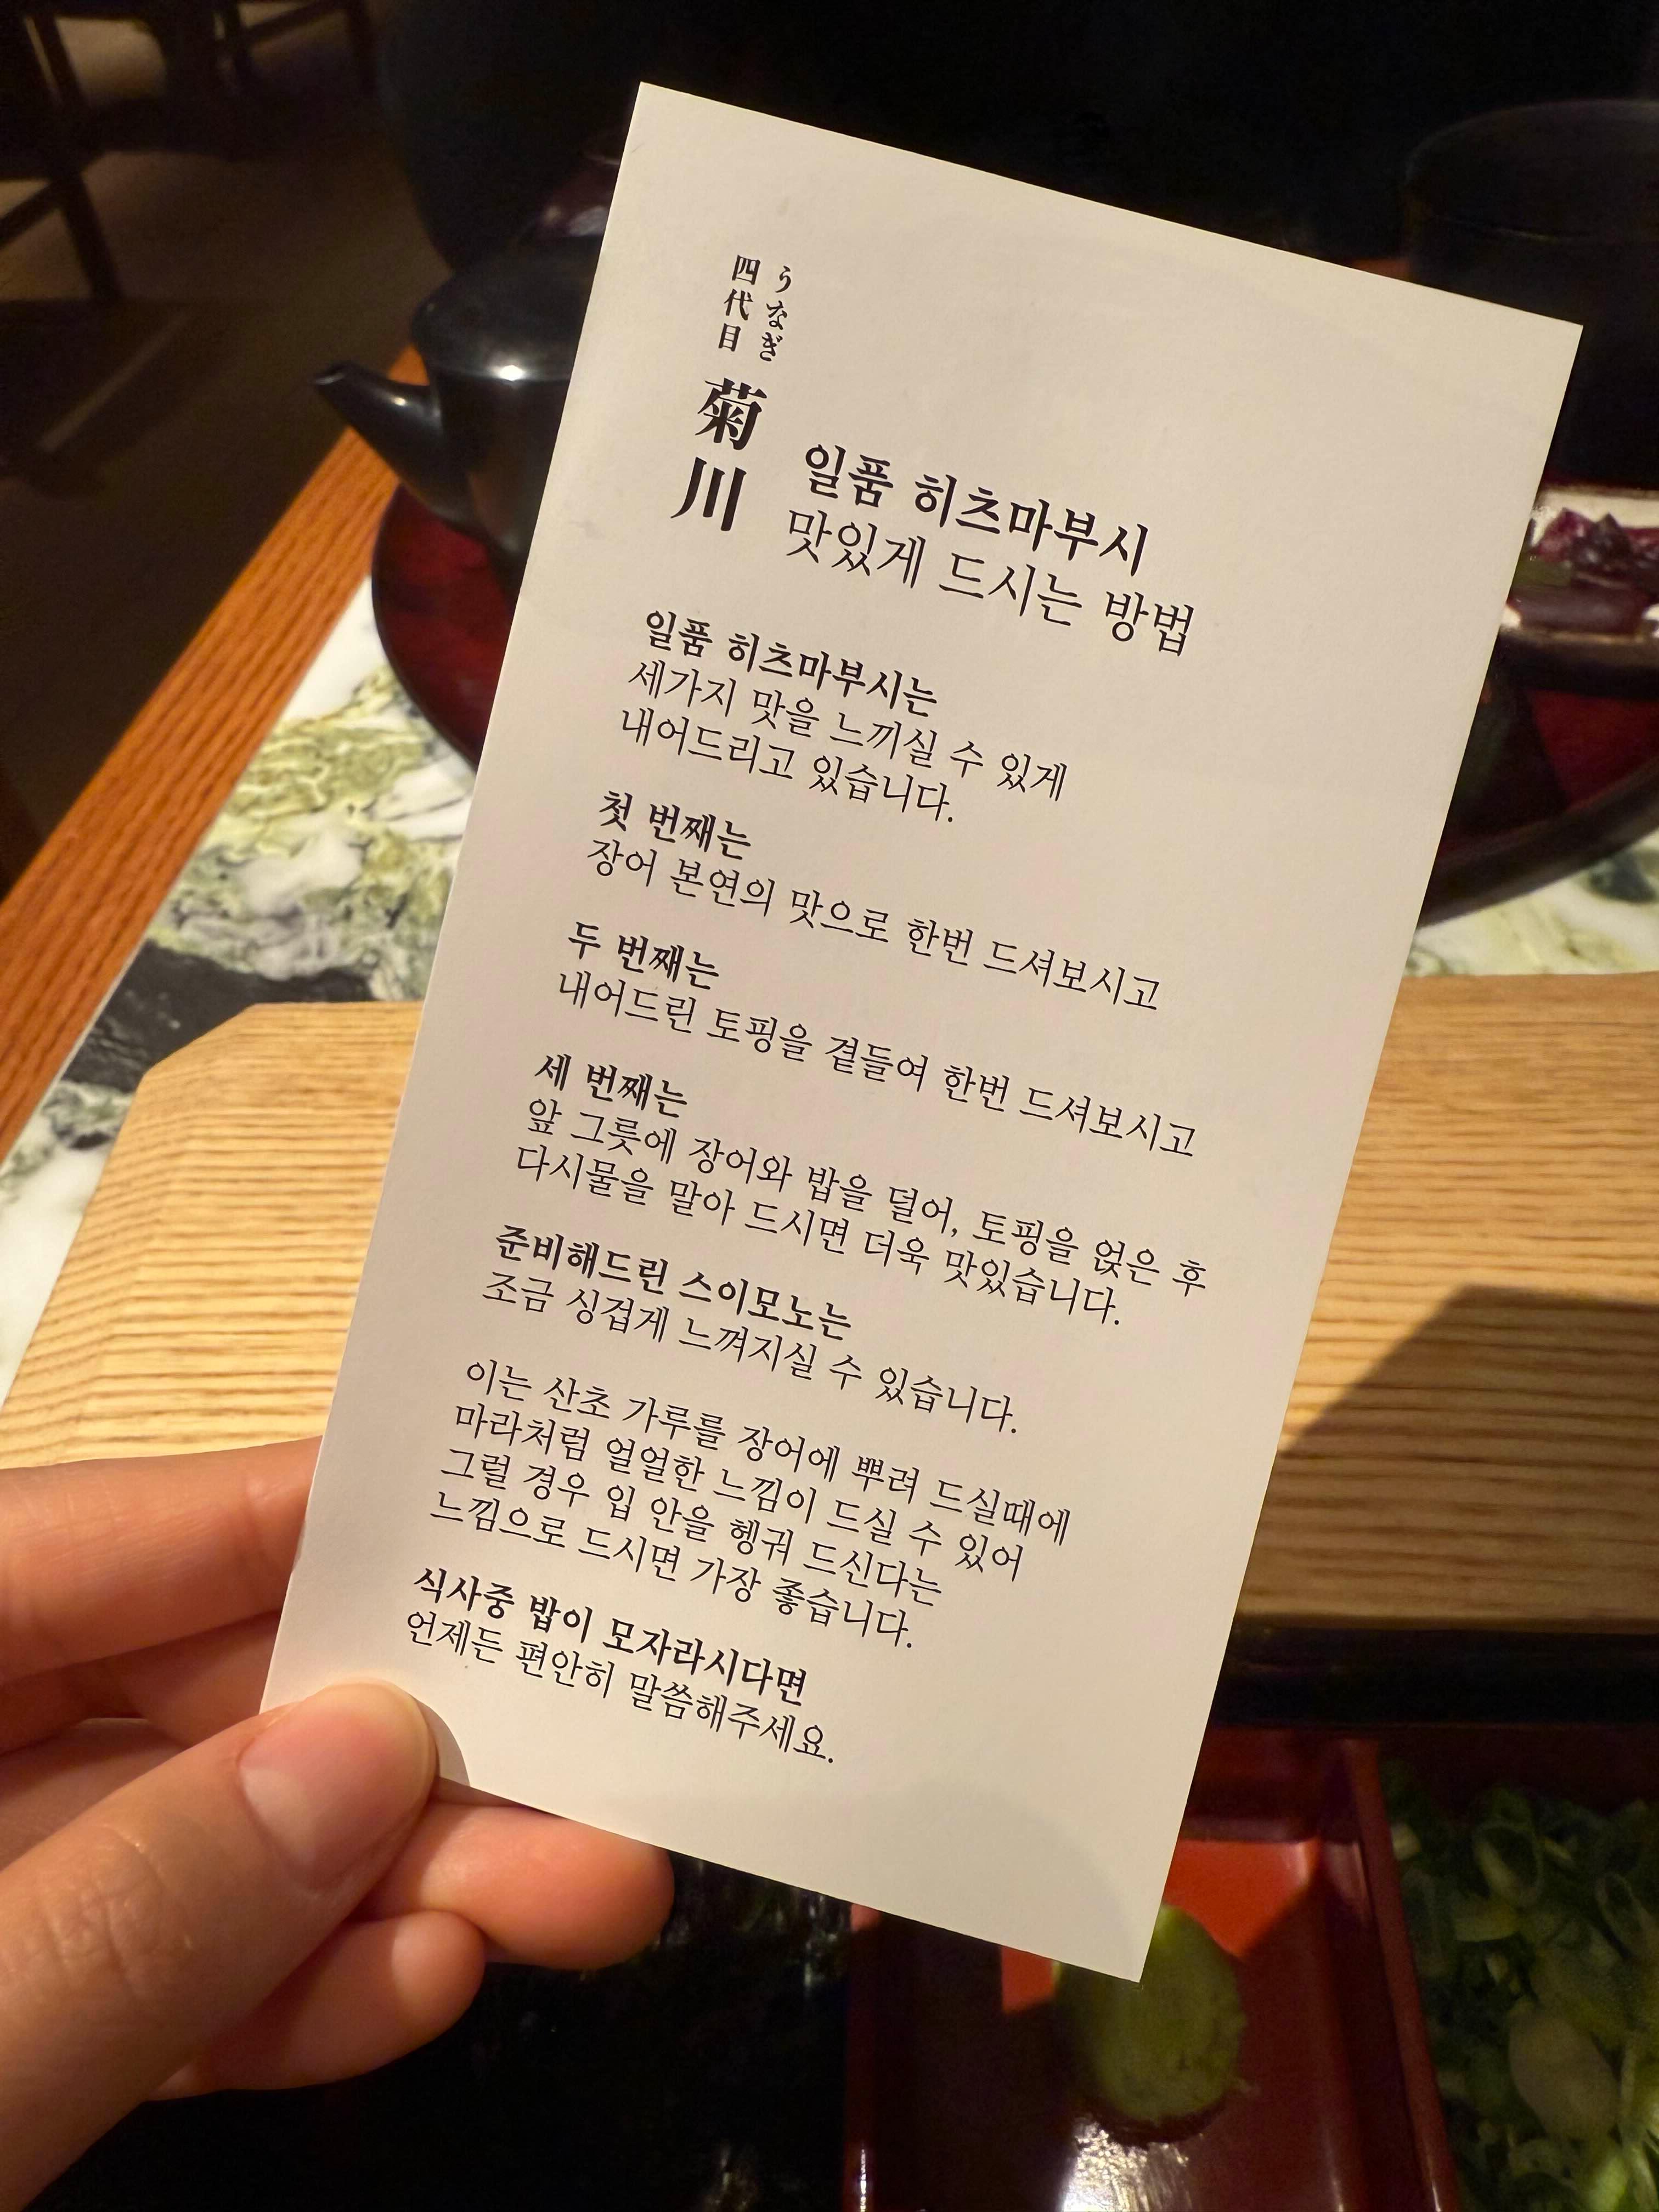 うなぎ
四代目
菊川
일품 히츠마부시
맛있게 드시는 방법
일품 히츠마부시는
세가지 맛을 느끼실 수 있게
내어드리고 있습니다.
첫 번째는
장어 본연의 맛으로 한번 드셔보시고
두 번째는
내어드린 토핑을 곁들여 한번 드셔보시고
세 번째는
앞 그릇에 장어와 밥을 덜어, 토핑을 얹은 후
다시물을 말아 드시면 더욱 맛있습니다.
준비해드린 스이모노는
조금 싱겁게 느껴지실 수 있습니다.
이는 산초 가루를 장어에 뿌려 드실때에
마라처럼 얼얼한 느낌이 드실 수 있어
그럴 경우 입 안을 헹궈 드신다는
느낌으로 드시면 가장 좋습니다.
식사중 밥이 모자라시다면
언제든 편안히 말씀해주세요.